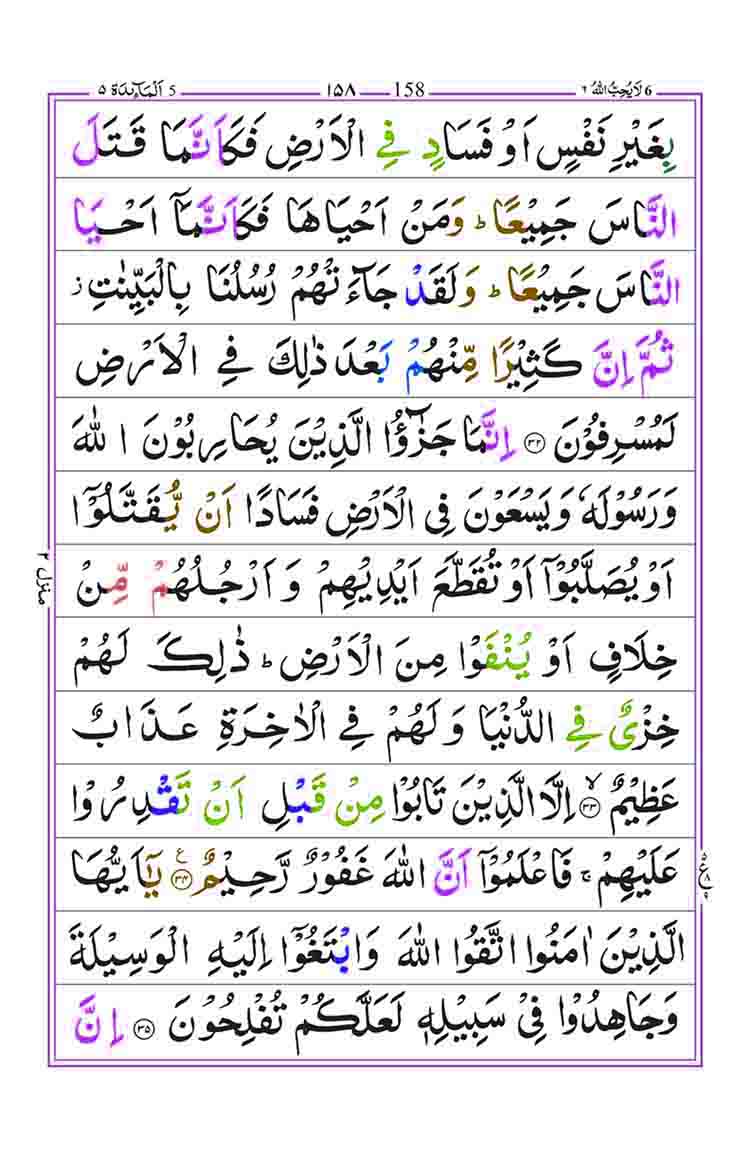 6 لَا يُحِبُّ اللهُ ۶ 158 ۱۵۸ 5 اَلْمَآئِدَة ۵
بِغَيْرِ نَفْسٍ اَوْ فَسَادٍ فِي الْاَرْضِ فَكَاَنَّمَا قَتَلَ
النَّاسَ جَمِيْعًا ؕ وَمَنْ اَحْيَاهَا فَكَاَنَّمَاۤ اَحْيَا
النَّاسَ جَمِيْعًا ؕ وَلَقَدْ جَآءَتْهُمْ رُسُلُنَا بِالْبَيِّنٰتِ ز
ثُمَّ اِنَّ كَثِيْرًا مِّنْهُمْ بَعْدَ ذٰلِكَ فِي الْاَرْضِ
لَمُسْرِفُوْنَ ۝۳۲ اِنَّمَا جَزٰٓؤُا الَّذِيْنَ يُحَارِبُوْنَ اللّٰهَ
وَرَسُوْلَهٗ وَيَسْعَوْنَ فِي الْاَرْضِ فَسَادًا اَنْ يُّقَتَّلُوْۤا
اَوْ يُصَلَّبُوْۤا اَوْ تُقَطَّعَ اَيْدِيْهِمْ وَاَرْجُلُهُمْ مِّنْ
خِلَافٍ اَوْ يُنْفَوْا مِنَ الْاَرْضِ ؕ ذٰلِكَ لَهُمْ
خِزْيٌ فِي الدُّنْيَا وَلَهُمْ فِي الْاٰخِرَةِ عَذَابٌ
عَظِيْمٌ ۝۳۳ۙ اِلَّا الَّذِيْنَ تَابُوْا مِنْ قَبْلِ اَنْ تَقْدِرُوْا
عَلَيْهِمْ ۚ فَاعْلَمُوْۤا اَنَّ اللّٰهَ غَفُوْرٌ رَّحِيْمٌ ۝۳۴ ع يٰۤاَيُّهَا
الَّذِيْنَ اٰمَنُوا اتَّقُوا اللّٰهَ وَابْتَغُوْۤا اِلَيْهِ الْوَسِيْلَةَ
وَجَاهِدُوْا فِيْ سَبِيْلِهٖ لَعَلَّكُمْ تُفْلِحُوْنَ ۝۳۵ اِنَّ
منزل ۲